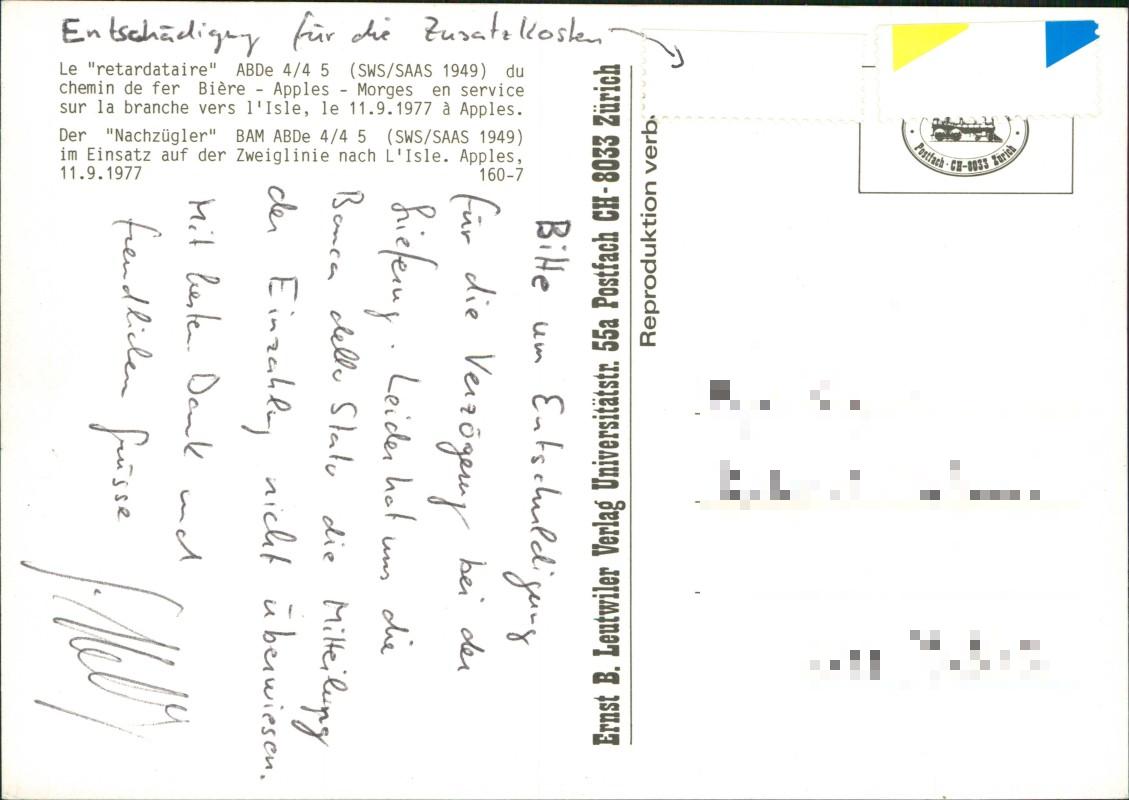 Entschädigung für die Zusatzkosten
Le "retardataire" ABDe 4/4 5 (SWS/SAAS 1949) du
chemin de fer Bière - Apples - Morges en service
sur la branche vers l'Isle, le 11.9.1977 à Apples.
Der "Nachzügler" BAM ABDe 4/4 5 (SWS/SAAS 1949)
im Einsatz auf der Zweiglinie nach L'Isle. Apples,
11.9.1977 160-7
Bitte um Entschuldigung
für die Verzögerung bei der
Lieferung. Leider hat uns die
Banca dello Stato die Mitteilung
der Einzahlung nicht überwiesen.
Mit besten Dank und
freundlichen Grüsse
Ernst B. Leutwiler Verlag Universitätstr. 55a Postfach CH-8033 Zürich
Reproduktion verb
Postfach · CH-8033 Zürich